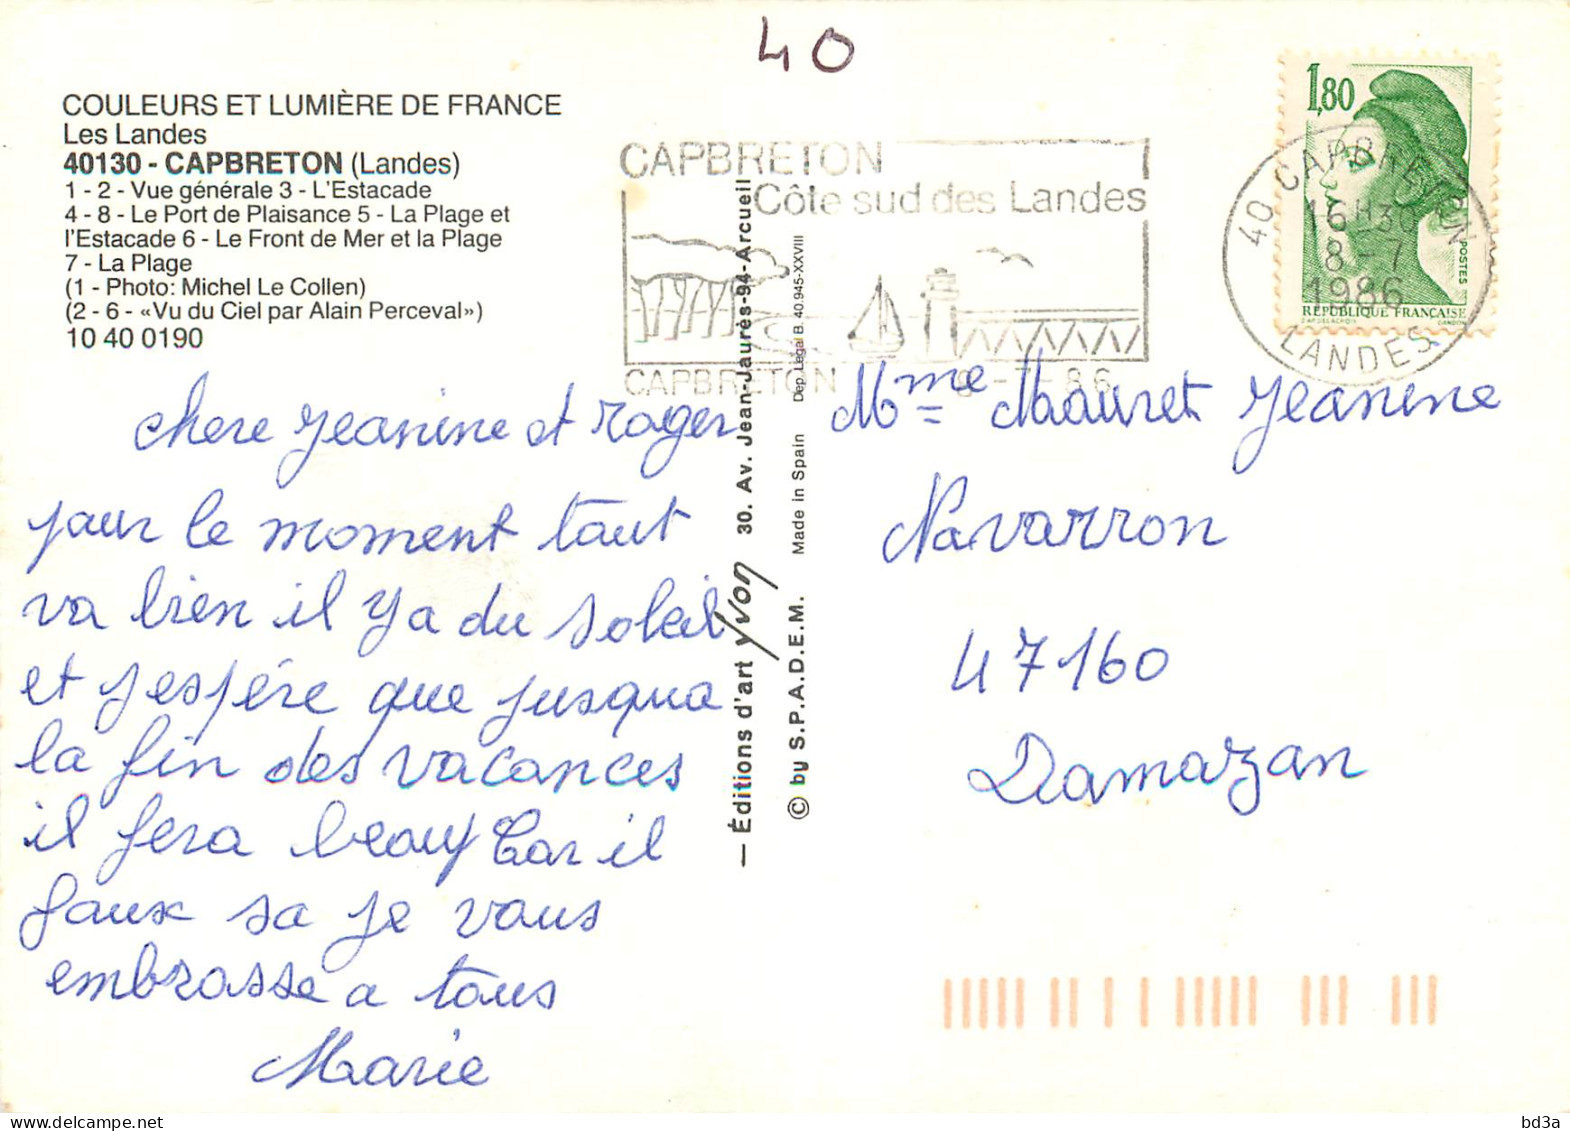 40
COULEURS ET LUMIÈRE DE FRANCE
Les Landes
40130 - CAPBRETON (Landes)
1 - 2 - Vue générale 3 - L'Estacade
4 - 8 - Le Port de Plaisance 5 - La Plage et
l'Estacade 6 - Le Front de Mer et la Plage
7 - La Plage
(1 - Photo: Michel Le Collen)
(2 - 6 - «Vu du Ciel par Alain Perceval»)
10 40 0190
CAPBRETON
Côte sud des Landes
CAPBRETON 8-7-86
1,80
POSTES
RÉPUBLIQUE FRANÇAISE
D'AP. DELACROIX GANDON
40 CAPBRETON
16H30
8-7
1986
LANDES
chere jeanine et roger
pour le moment tout
va bien il y a du soleil
et j espére que jusqua
la fin des vacances
il fera beau Car il
faux sa je vous
embrasse a tous
Marie
— Éditions d'art yvon 30. Av. Jean-Jaurès-94-Arcueil
© by S.P.A.D.E.M. Made in Spain Dep. Légal B. 40.945-XXVIII
Mme Mauret Jeanine
Navarron
47160
Damazan
bd3a